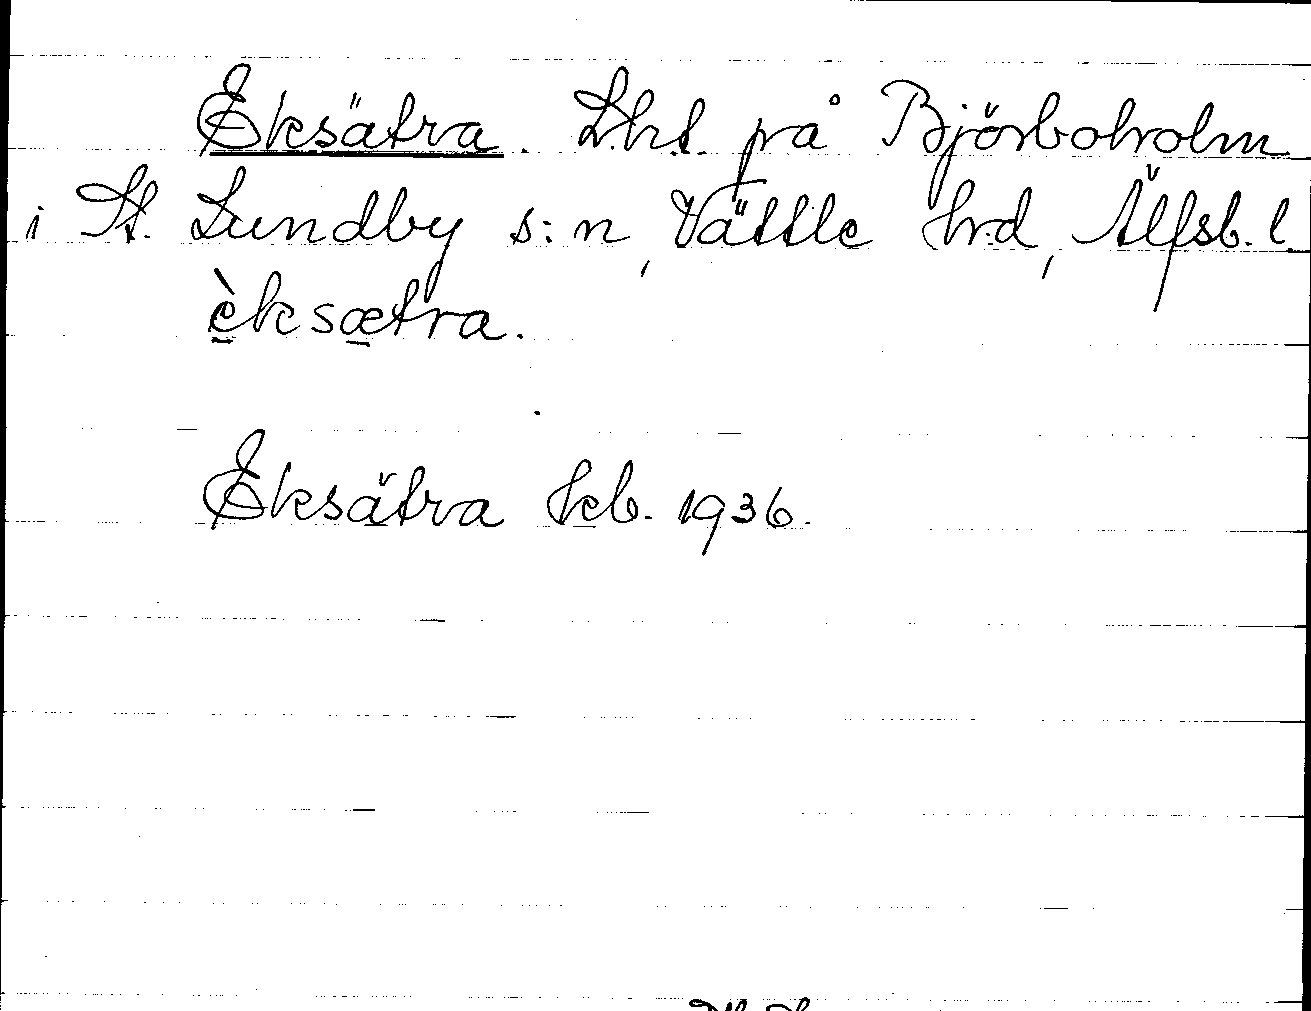 Eksätra. Lht. på Björboholm
i St. Lundby s:n, Vättle hrd, Älfsb. l.
èksætra.
Eksätra kb. 1936.